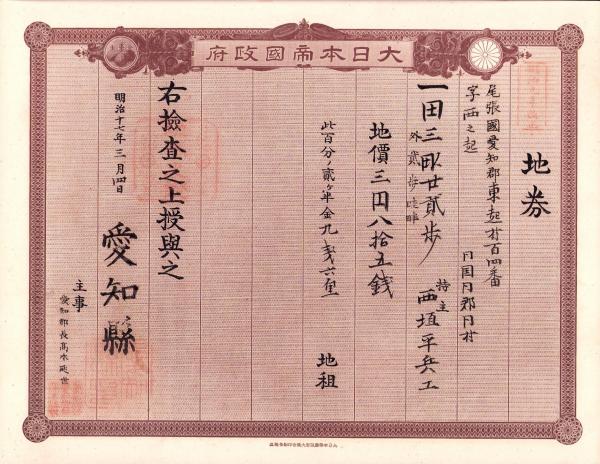 大日本帝國政府
地券
尾張國愛知郡東起村百四番
字西之起
一田三畝廿貳歩
外貳歩 畦畔
同国同郡同村
持主 西垣平兵エ
地價三円八拾五銭
此百分ノ貳ヶ半金九銭六厘
地租
右撿査之上授與之
明治十七年三月四日
愛知縣
主事
愛知郡長